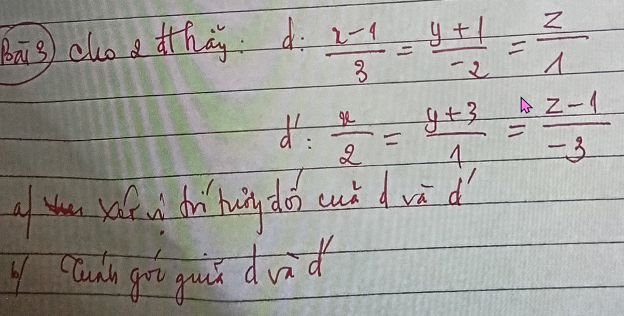 Bài 3) cho 2 đt thẳng: d: x-1/3 = y+1/-2 = z/1
d': x/2 = y+3/1 = z-1/-3
a/ xét vị trí tương đối của d và d'
b/ Tính góc giữa d và d'